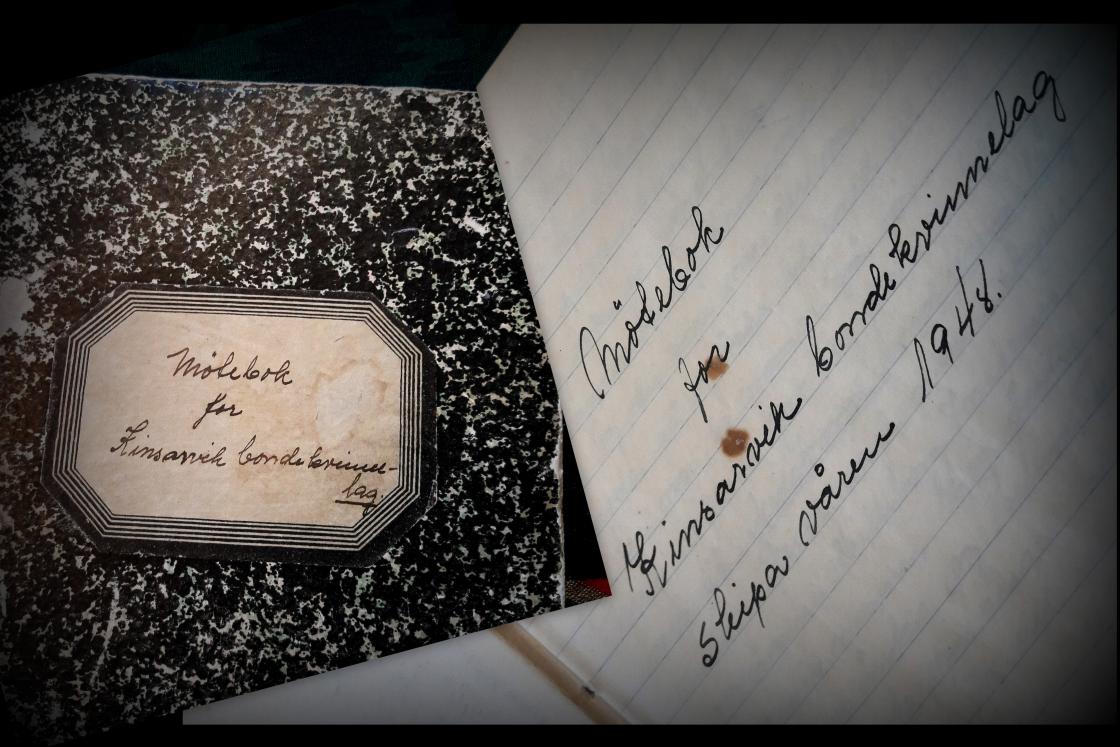 Mötebok
for
Kinsarvik bondekvinne-
lag.
Mötebok
for
Kinsarvik bondekvinnelag
skipa våren 1948.